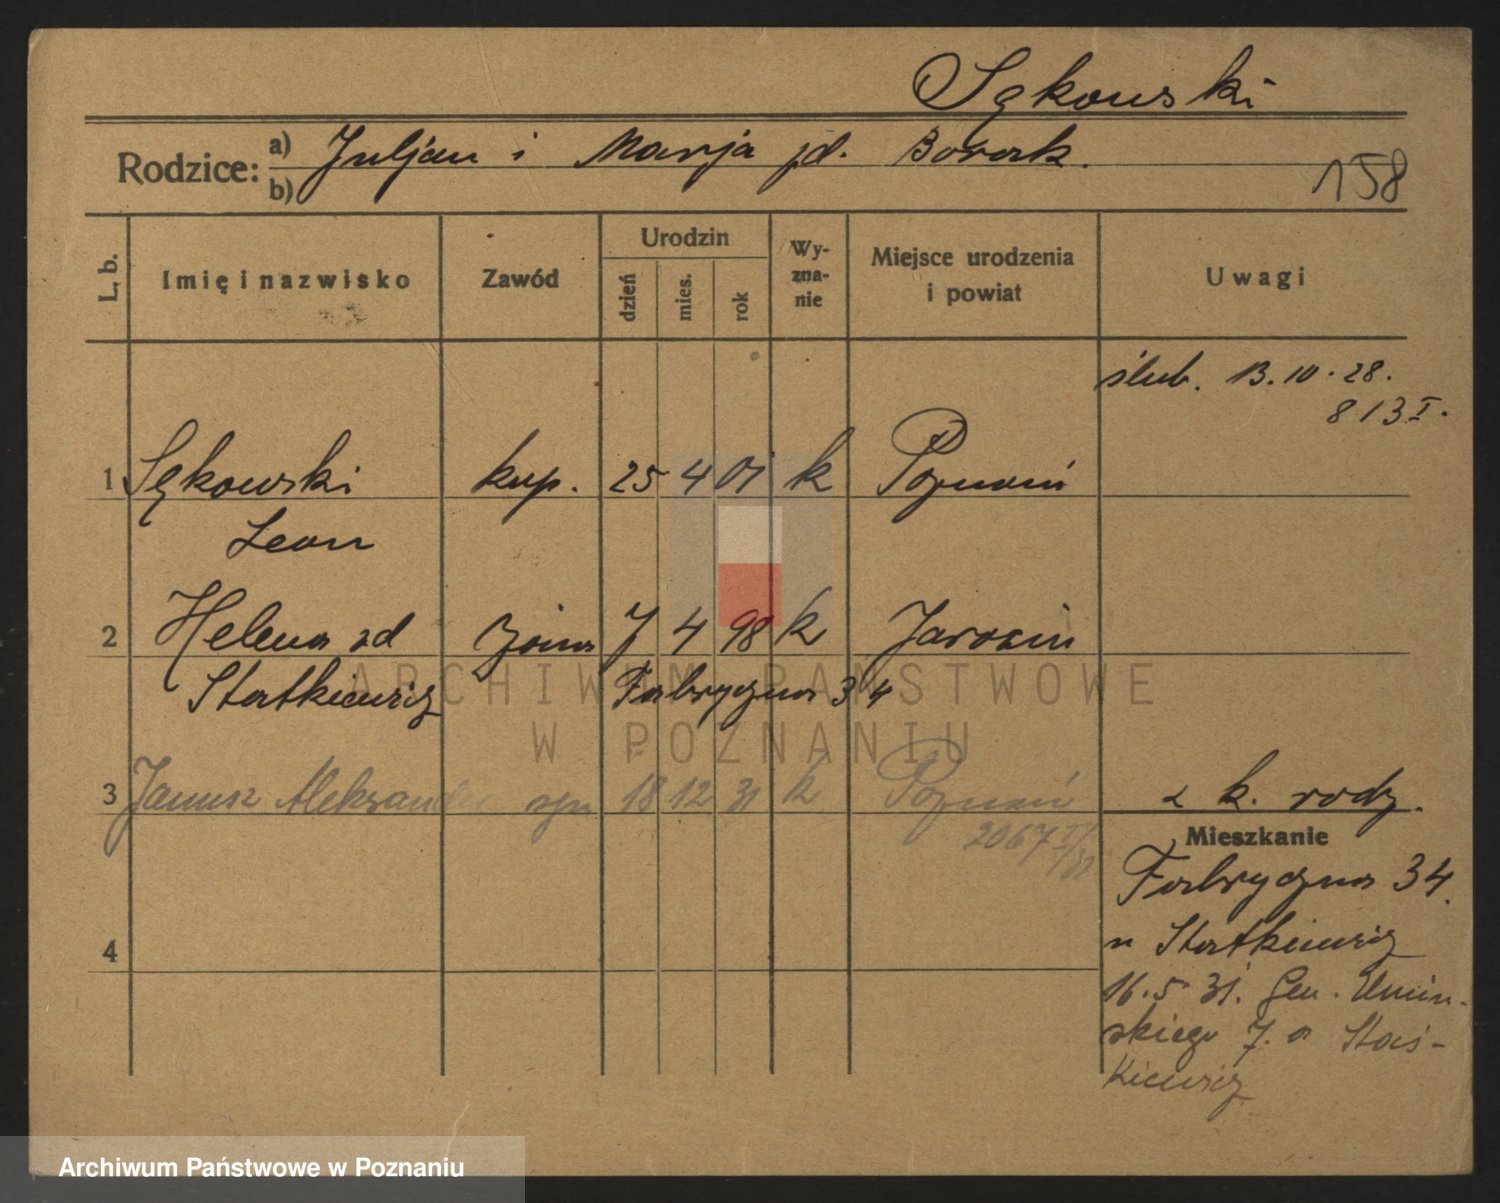 Sękowski
Rodzice: a) Juljan i Marja zd. Borak.
b)
158
L. b.
Imię i nazwisko
Zawód
Urodzin
dzień
mies.
rok
Wy-
zna-
nie
Miejsce urodzenia
i powiat
Uwagi
ślub. 13.10.28.
813 I.
1 Sękowski kup. 25 4 01 k Poznań
Leon
2 Helena zd żona 7 4 98 k Jarocin
Statkiewicz Fabryczna 34
ARCHIWUM PAŃSTWOWE
W POZNANIU
3 Janusz Aleksander syn 18 12 31 k Poznań
2067 I/31
z k. rodz.
Mieszkanie
Fabryczna 34.
u Statkiewicz
4
16.5 31. Gen. Umiń-
skiego 7.
kiewicz
Archiwum Państwowe w Poznaniu